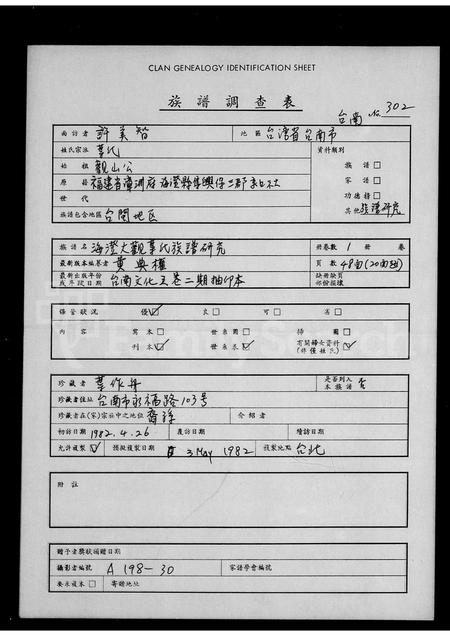 CLAN GENEALOGY IDENTIFICATION SHEET
族譜調查表
台南 No 302
面訪者 許美智 地區 台灣省台南市
姓氏宗派 葉氏 資料類別
始祖 觀山公 族譜□
原籍 福建省漳洲府海澄縣 家譜□
世代 功德榜□
族譜包含地區 台閩地區 其他 族譜研究
族譜名 海澄大觀葉氏族譜研究 冊卷數 1 冊 卷
最新版本編著者 黃典權 頁數 48面(20面題)
最新出版年份或年段日期 台南文化五卷二期抽印本 缺冊缺頁部份損壞
保管狀況 優☑ 良□ 可□ 劣□
內容 寫本□ 世系圖□ 排圖□
刊本☑ 世系表☑ 有關婦女資料(非僅姓氏)☑
珍藏者 葉作舟 是否列入本族譜 否
珍藏者住址 台南市永福路103号
珍藏者在(宗)家族中之地位 裔孫 介紹者
初訪日期 1982.4.26 庋訪日期 續訪日期
允許複製☑ 預擬複製日期 3 May 1982 複製地點 台北
附註
贈予者獎狀頒贈日期
攝影者編號 A 198-30 家譜學會編號
要求複本□ 寄贈地址